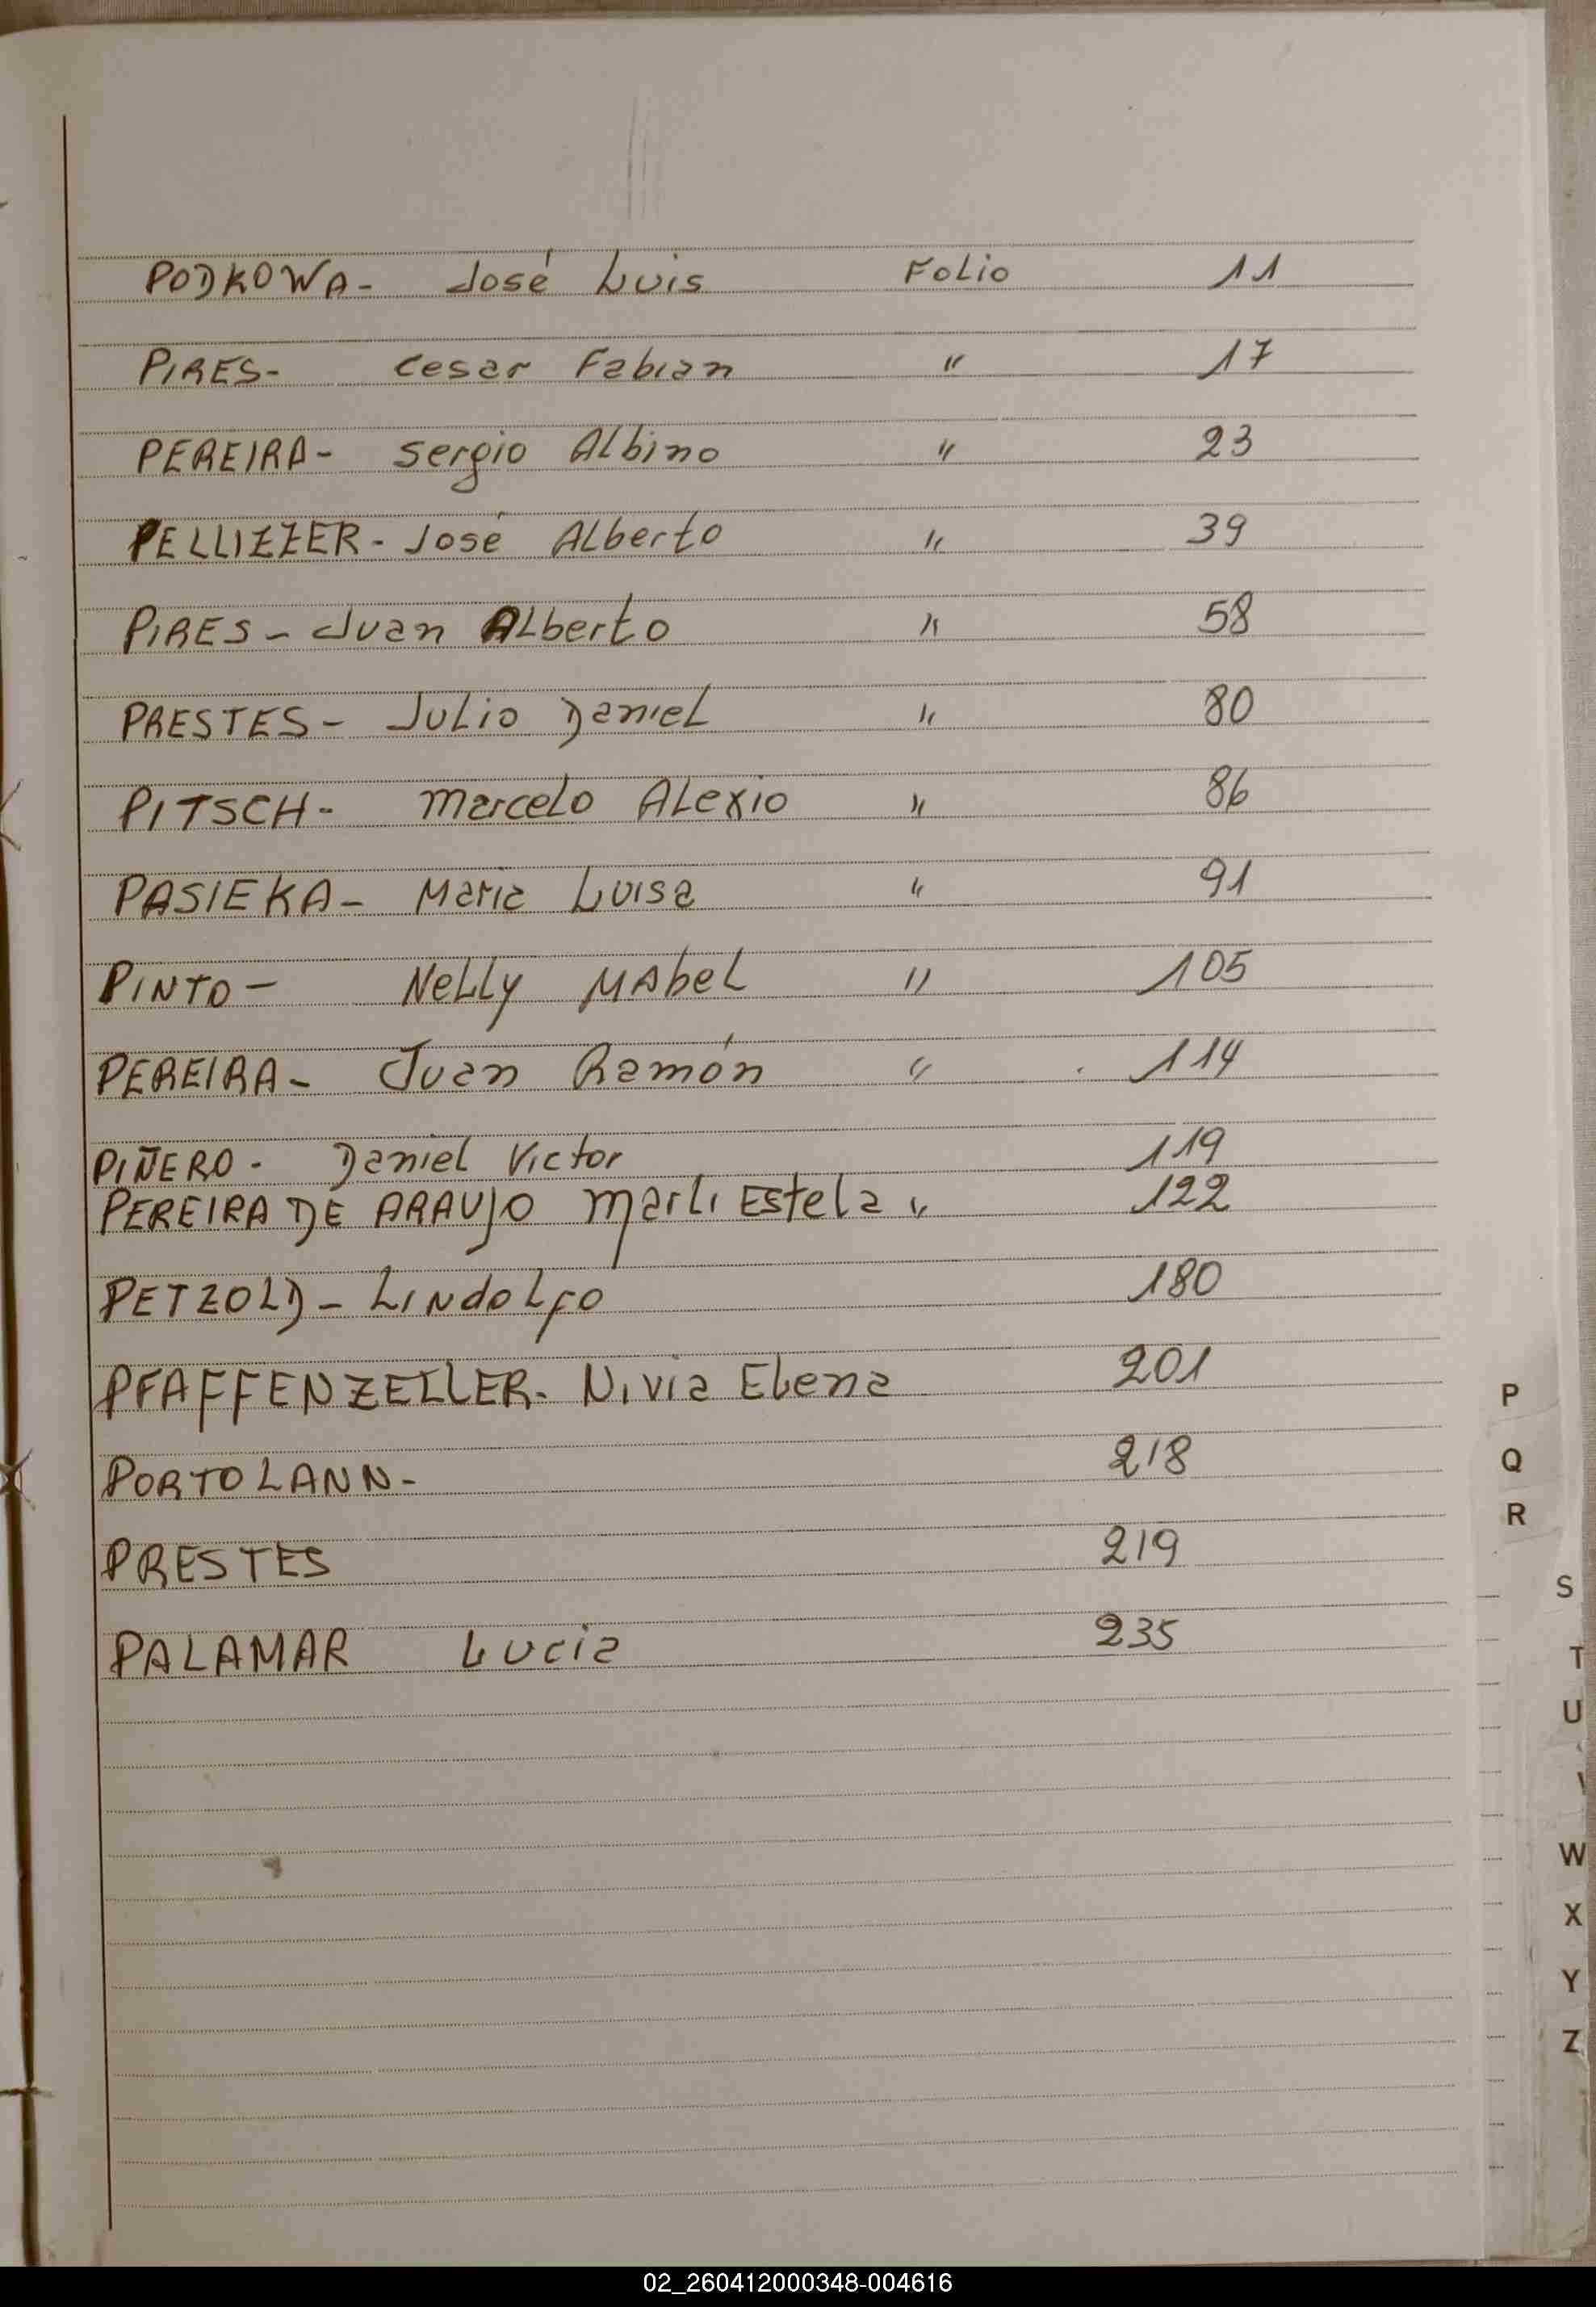 PODKOWA- José Luis Folio 11
PIRES- Cesar Fabian " 17
PEREIRA- Sergio Albino " 23
PELLIZZER- José Alberto " 39
PIRES- Juan Alberto " 58
PRESTES- Julio Daniel " 80
PITSCH- Marcelo Alexio " 86
PASIEKA- Maria Luisa " 91
PINTO- Nelly Mabel " 105
PEREIRA- Juan Ramón " 114
PIÑERO- Daniel Victor 119
PEREIRA DE ARAUJO Marli Estela " 122
PETZOLD- Lindolfo 180
PFAFFENZEILER- Nivia Elena 201
PORTOLANN- 218
PRESTES 219
PALAMAR Lucia 235
P
Q
R
S
T
U
W
X
Y
Z
02_260412000348-004616